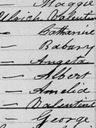 Maggie
Ulrich Valentine
— Catharine
— Barbary
— Angeta
— Albert
— Amelia
— Valentine
— George